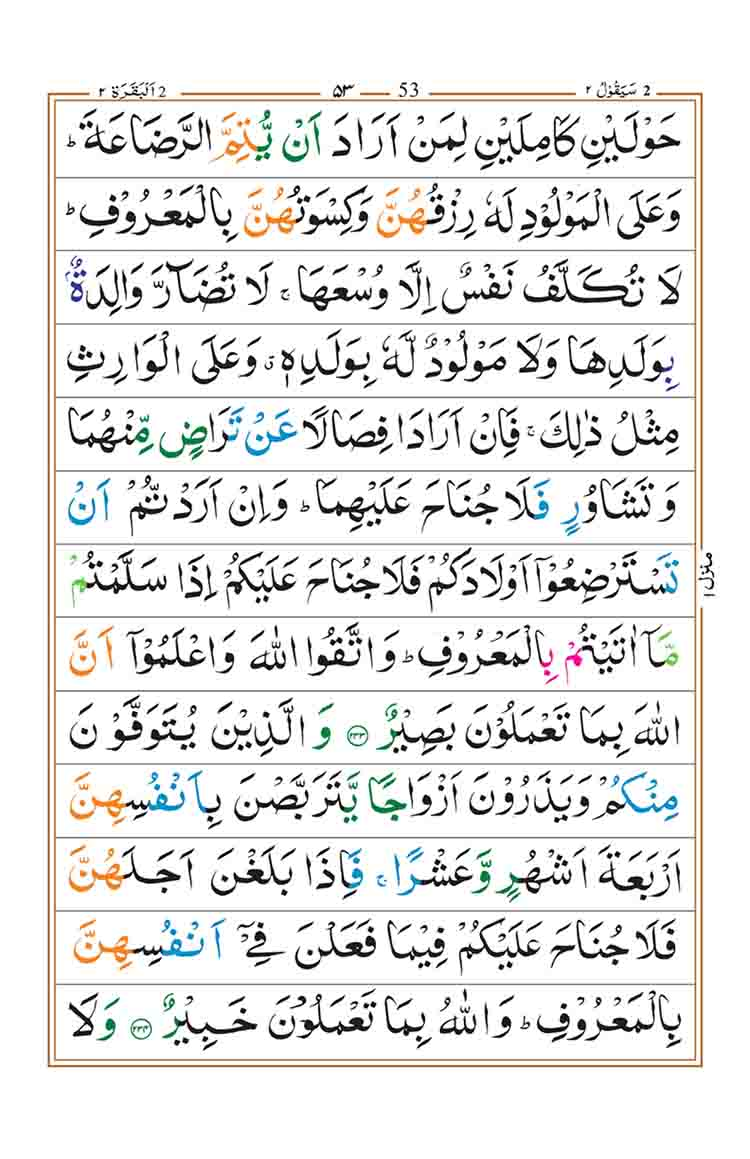 2 سَيَقُوْلُ ٢ 53 ٥٣ 2 اَلْبَقَرَة ٢
حَوْلَيْنِ كَامِلَيْنِ لِمَنْ اَرَادَ اَنْ يُّتِمَّ الرَّضَاعَةَ ؕ
وَعَلَى الْمَوْلُوْدِ لَهٗ رِزْقُهُنَّ وَكِسْوَتُهُنَّ بِالْمَعْرُوْفِ ؕ
لَا تُكَلَّفُ نَفْسٌ اِلَّا وُسْعَهَا ۚ لَا تُضَآرَّ وَالِدَةٌۢ
بِوَلَدِهَا وَلَا مَوْلُوْدٌ لَّهٗ بِوَلَدِهٖ ۗ وَعَلَى الْوَارِثِ
مِثْلُ ذٰلِكَ ۚ فَاِنْ اَرَادَا فِصَالًا عَنْ تَرَاضٍ مِّنْهُمَا
وَتَشَاوُرٍ فَلَا جُنَاحَ عَلَيْهِمَا ؕ وَاِنْ اَرَدْتُّمْ اَنْ
تَسْتَرْضِعُوْٓا اَوْلَادَكُمْ فَلَا جُنَاحَ عَلَيْكُمْ اِذَا سَلَّمْتُمْ
مَّآ اٰتَيْتُمْ بِالْمَعْرُوْفِ ؕ وَاتَّقُوا اللهَ وَاعْلَمُوْٓا اَنَّ
اللهَ بِمَا تَعْمَلُوْنَ بَصِيْرٌ ﴿٢٣٣﴾ وَالَّذِيْنَ يُتَوَفَّوْنَ
مِنْكُمْ وَيَذَرُوْنَ اَزْوَاجًا يَّتَرَبَّصْنَ بِاَنْفُسِهِنَّ
اَرْبَعَةَ اَشْهُرٍ وَّعَشْرًا ۚ فَاِذَا بَلَغْنَ اَجَلَهُنَّ
فَلَا جُنَاحَ عَلَيْكُمْ فِيْمَا فَعَلْنَ فِيْٓ اَنْفُسِهِنَّ
بِالْمَعْرُوْفِ ؕ وَاللهُ بِمَا تَعْمَلُوْنَ خَبِيْرٌ ﴿٢٣٤﴾ وَلَا
منزل ١